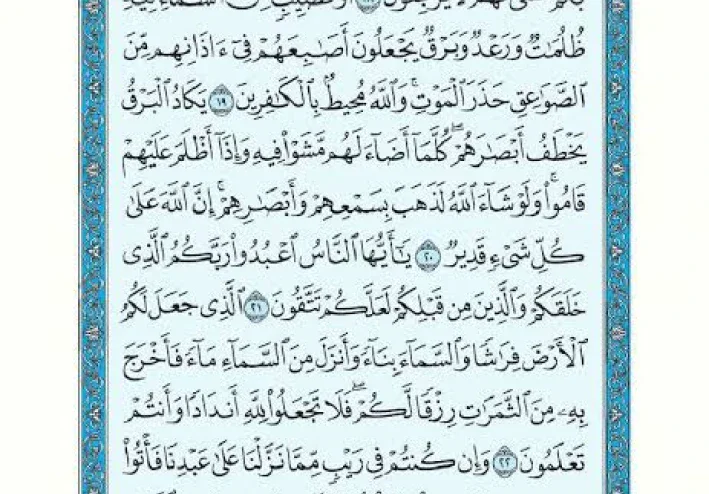 ظُلُمَٰتٌ وَرَعْدٌ وَبَرْقٌ يَجْعَلُونَ أَصَٰبِعَهُمْ فِىٓ ءَاذَانِهِم مِّنَ
ٱلصَّوَٰعِقِ حَذَرَ ٱلْمَوْتِۚ وَٱللَّهُ مُحِيطٌۢ بِٱلْكَٰفِرِينَ ١٩ يَكَادُ ٱلْبَرْقُ
يَخْطَفُ أَبْصَٰرَهُمْۖ كُلَّمَآ أَضَآءَ لَهُم مَّشَوْا۟ فِيهِ وَإِذَآ أَظْلَمَ عَلَيْهِمْ
قَامُوا۟ۚ وَلَوْ شَآءَ ٱللَّهُ لَذَهَبَ بِسَمْعِهِمْ وَأَبْصَٰرِهِمْۚ إِنَّ ٱللَّهَ عَلَىٰ
كُلِّ شَىْءٍ قَدِيرٌ ٢٠ يَٰٓأَيُّهَا ٱلنَّاسُ ٱعْبُدُوا۟ رَبَّكُمُ ٱلَّذِى
خَلَقَكُمْ وَٱلَّذِينَ مِن قَبْلِكُمْ لَعَلَّكُمْ تَتَّقُونَ ٢١ ٱلَّذِى جَعَلَ لَكُمُ
ٱلْأَرْضَ فِرَٰشًا وَٱلسَّمَآءَ بِنَآءً وَأَنزَلَ مِنَ ٱلسَّمَآءِ مَآءً فَأَخْرَجَ
بِهِۦ مِنَ ٱلثَّمَرَٰتِ رِزْقًا لَّكُمْۖ فَلَا تَجْعَلُوا۟ لِلَّهِ أَندَادًا وَأَنتُمْ
تَعْلَمُونَ ٢٢ وَإِن كُنتُمْ فِى رَيْبٍ مِّمَّا نَزَّلْنَا عَلَىٰ عَبْدِنَا فَأْتُوا۟